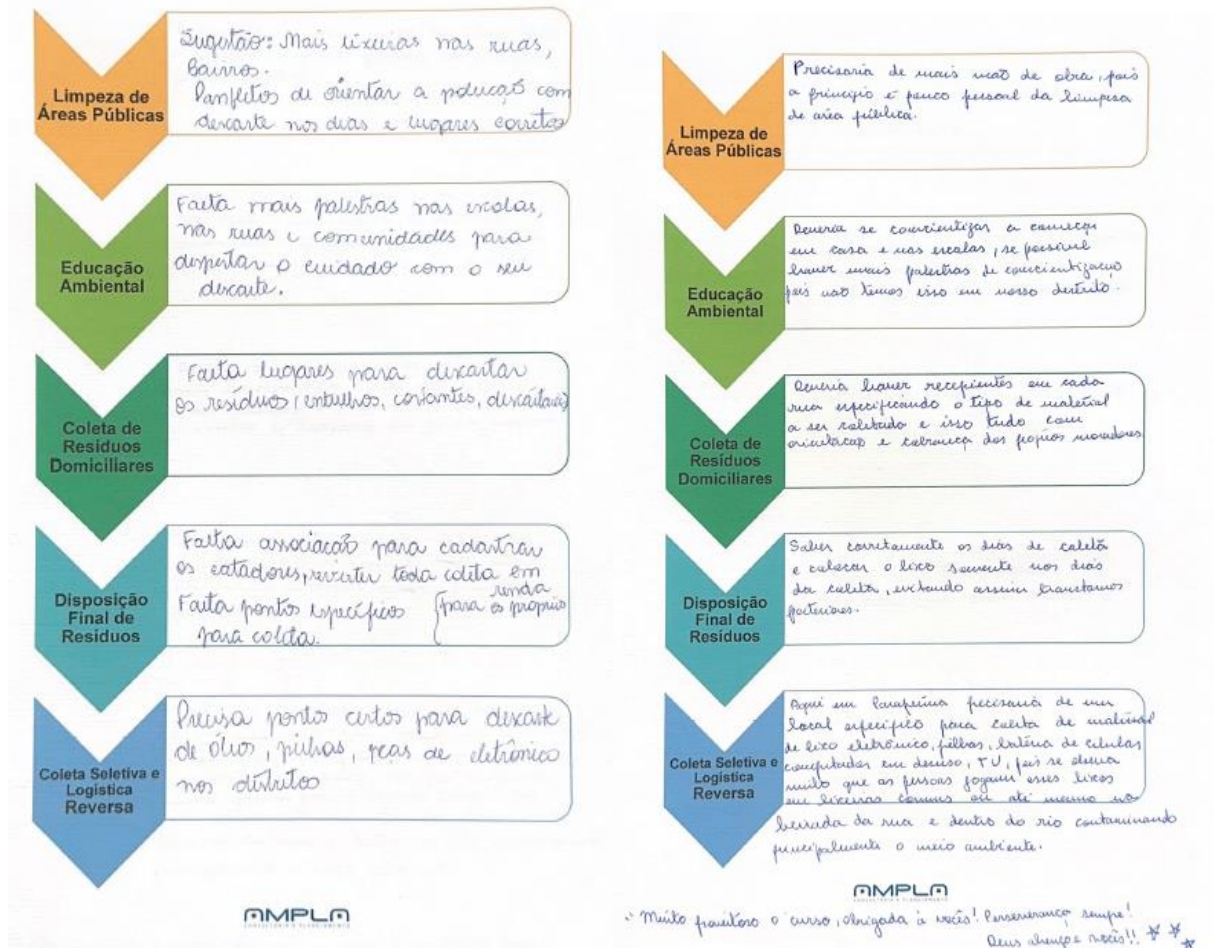 Limpeza de
Áreas Públicas
Sugestão: Mais lixeiras nas ruas,
Bairros.
Panfletos de orientar a com
descarte nos dias e lugares corretos
Educação
Ambiental
Falta mais palestras nas escolas,
nas ruas e comunidades para
despertar o cuidado com o seu
descarte.
Coleta de
Resíduos
Domiciliares
Falta lugares para descartar
os resíduos (entulhos, cortantes, descartáveis)
Disposição
Final de
Resíduos
Falta associação para cadastrar
os catadores, reverter toda coleta em
renda
para os próprios
Falta pontos específicos
para coleta.
Coleta Seletiva e
Logistica
Reversa
Precisa pontos certos para descarte
de óleos, pilhas, peças de eletrônico
nos distritos
AMPLA
CONSULTORIA E PLANEJAMENTO
Limpeza de
Áreas Públicas
Precisaria de mais mão de obra, pois
a principio é pouco pessoal da limpesa
de área pública.
Educação
Ambiental
Deveria se conscientizar a começar
em casa e nas escolas, se possivel
haver mais palestras de conscientização
pois não temos isso em nosso distrito.
Coleta de
Resíduos
Domiciliares
Deveria haver recepientes em cada
rua especificando o tipo de material
a ser coletado e isso tudo com
orientação e cobrança dos própios moradores
Disposição
Final de
Resíduos
Saber corretamente os dias de coleta
e colocar o lixo somente nos dias
da coleta, evitando assim transtornos
posteriores.
Coleta Seletiva e
Logistica
Reversa
Aqui em precisaria de um
local especifico para coleta de material
de lixo eletronico, pilhas, bateria de celular
computador em desuso, TV, pois se observa
muito que as pessoas jogam esses lixos
em lixeiras comuns ou até mesmo na
beirada da rua e dentro do rio contaminando
principalmente o meio ambiente.
AMPLA
CONSULTORIA E PLANEJAMENTO
Muito proveitoso o curso, obrigada à vocês! Perseverança sempre!
Deus abençoe vocês!!